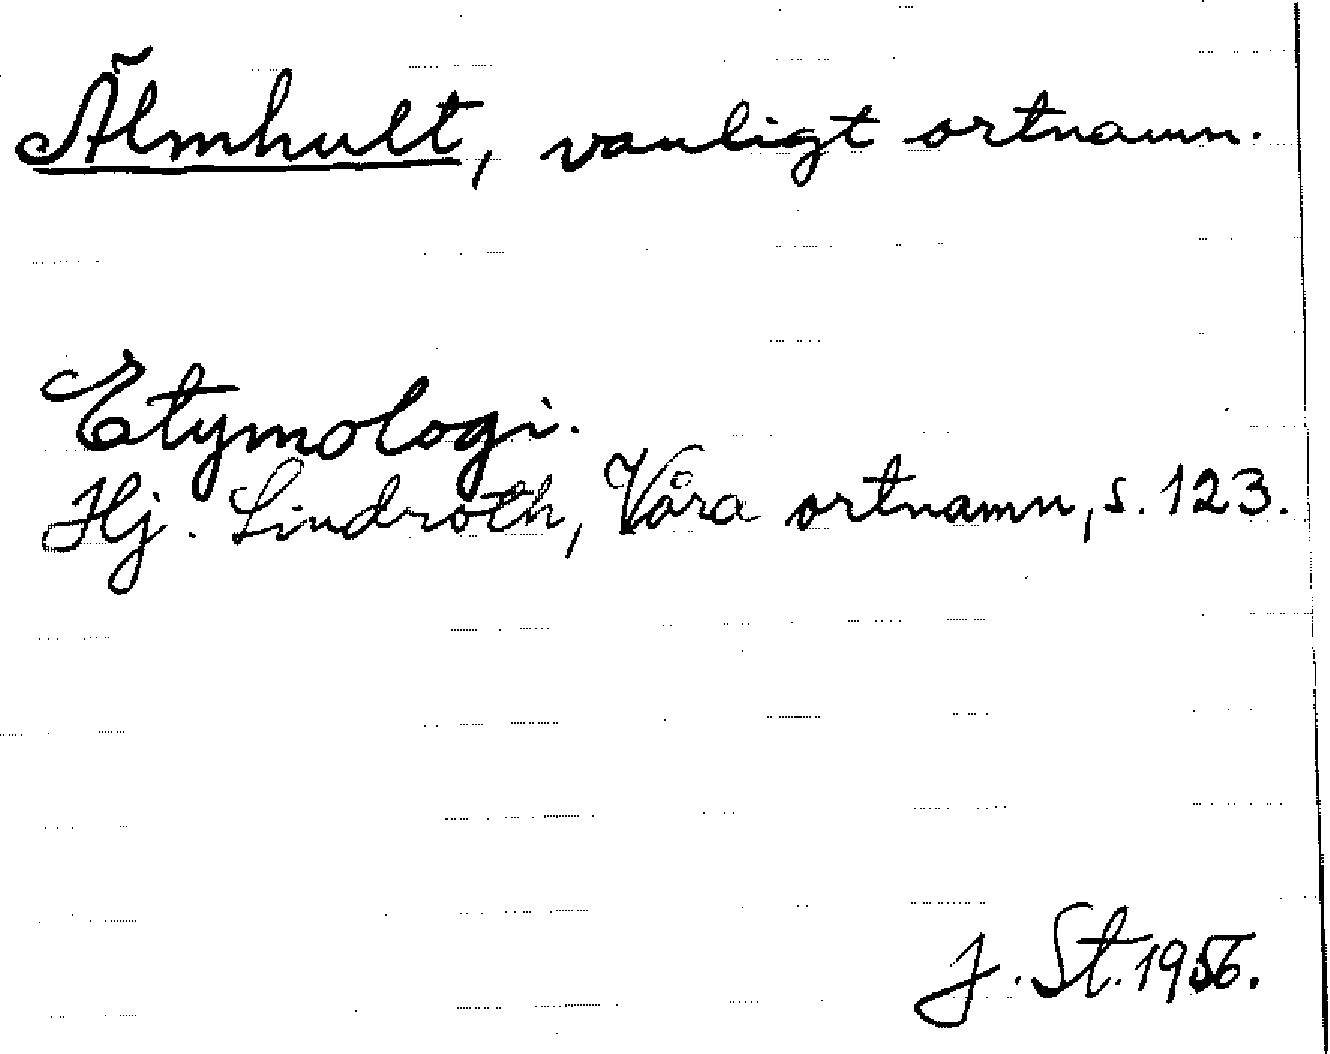 Älmhult, vanligt ortnamn.
Etymologi.
Hj. Lindroth, Våra ortnamn, s. 123.
J. St. 1956.